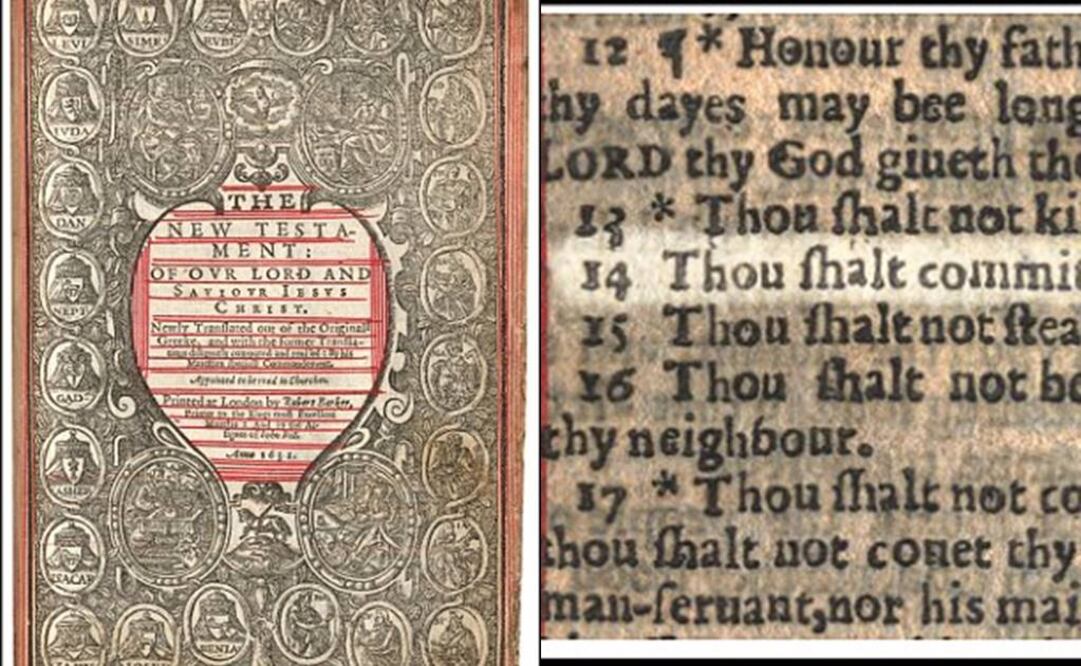 LEVI
SIME
RVBE
IVDA
DAN
NEPT
GAD
ASHER
ISACAR
BENIA
THE
NEW TESTA-
MENT:
OF OVR LORD AND
SAVIOVR IESVS
CHRIST.
Newly Translated out of the Originall
Greeke, and with the former Transla-
tions diligently compared and reuised: By his
Maiesties speciall Commandement.
Appointed to be read in Churches.
Printed at London by Robert Barker,
Printer to the Kings most Excellent
Maiestie: And by the As-
signes of Iohn Bill.
Anno 1631.
12 ¶ * Honour thy fath
hy dayes may bee long
LORD thy God giueth the
13 * Thou ſhalt not ki
14 Thou ſhalt commi
15 Thou ſhalt not ſtea
16 Thou ſhalt not be
thy neighbour.
17 * Thou ſhalt not co
thou ſhalt not couet thy
man-ſeruant, nor his mai